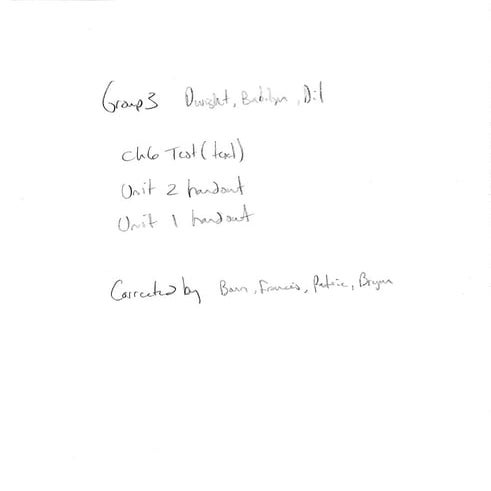 Group 3 Dwight,
Ch6 Test (text)
Unit 2 handout
Unit 1 handout
Corrected by Francis, Patric, Bryan